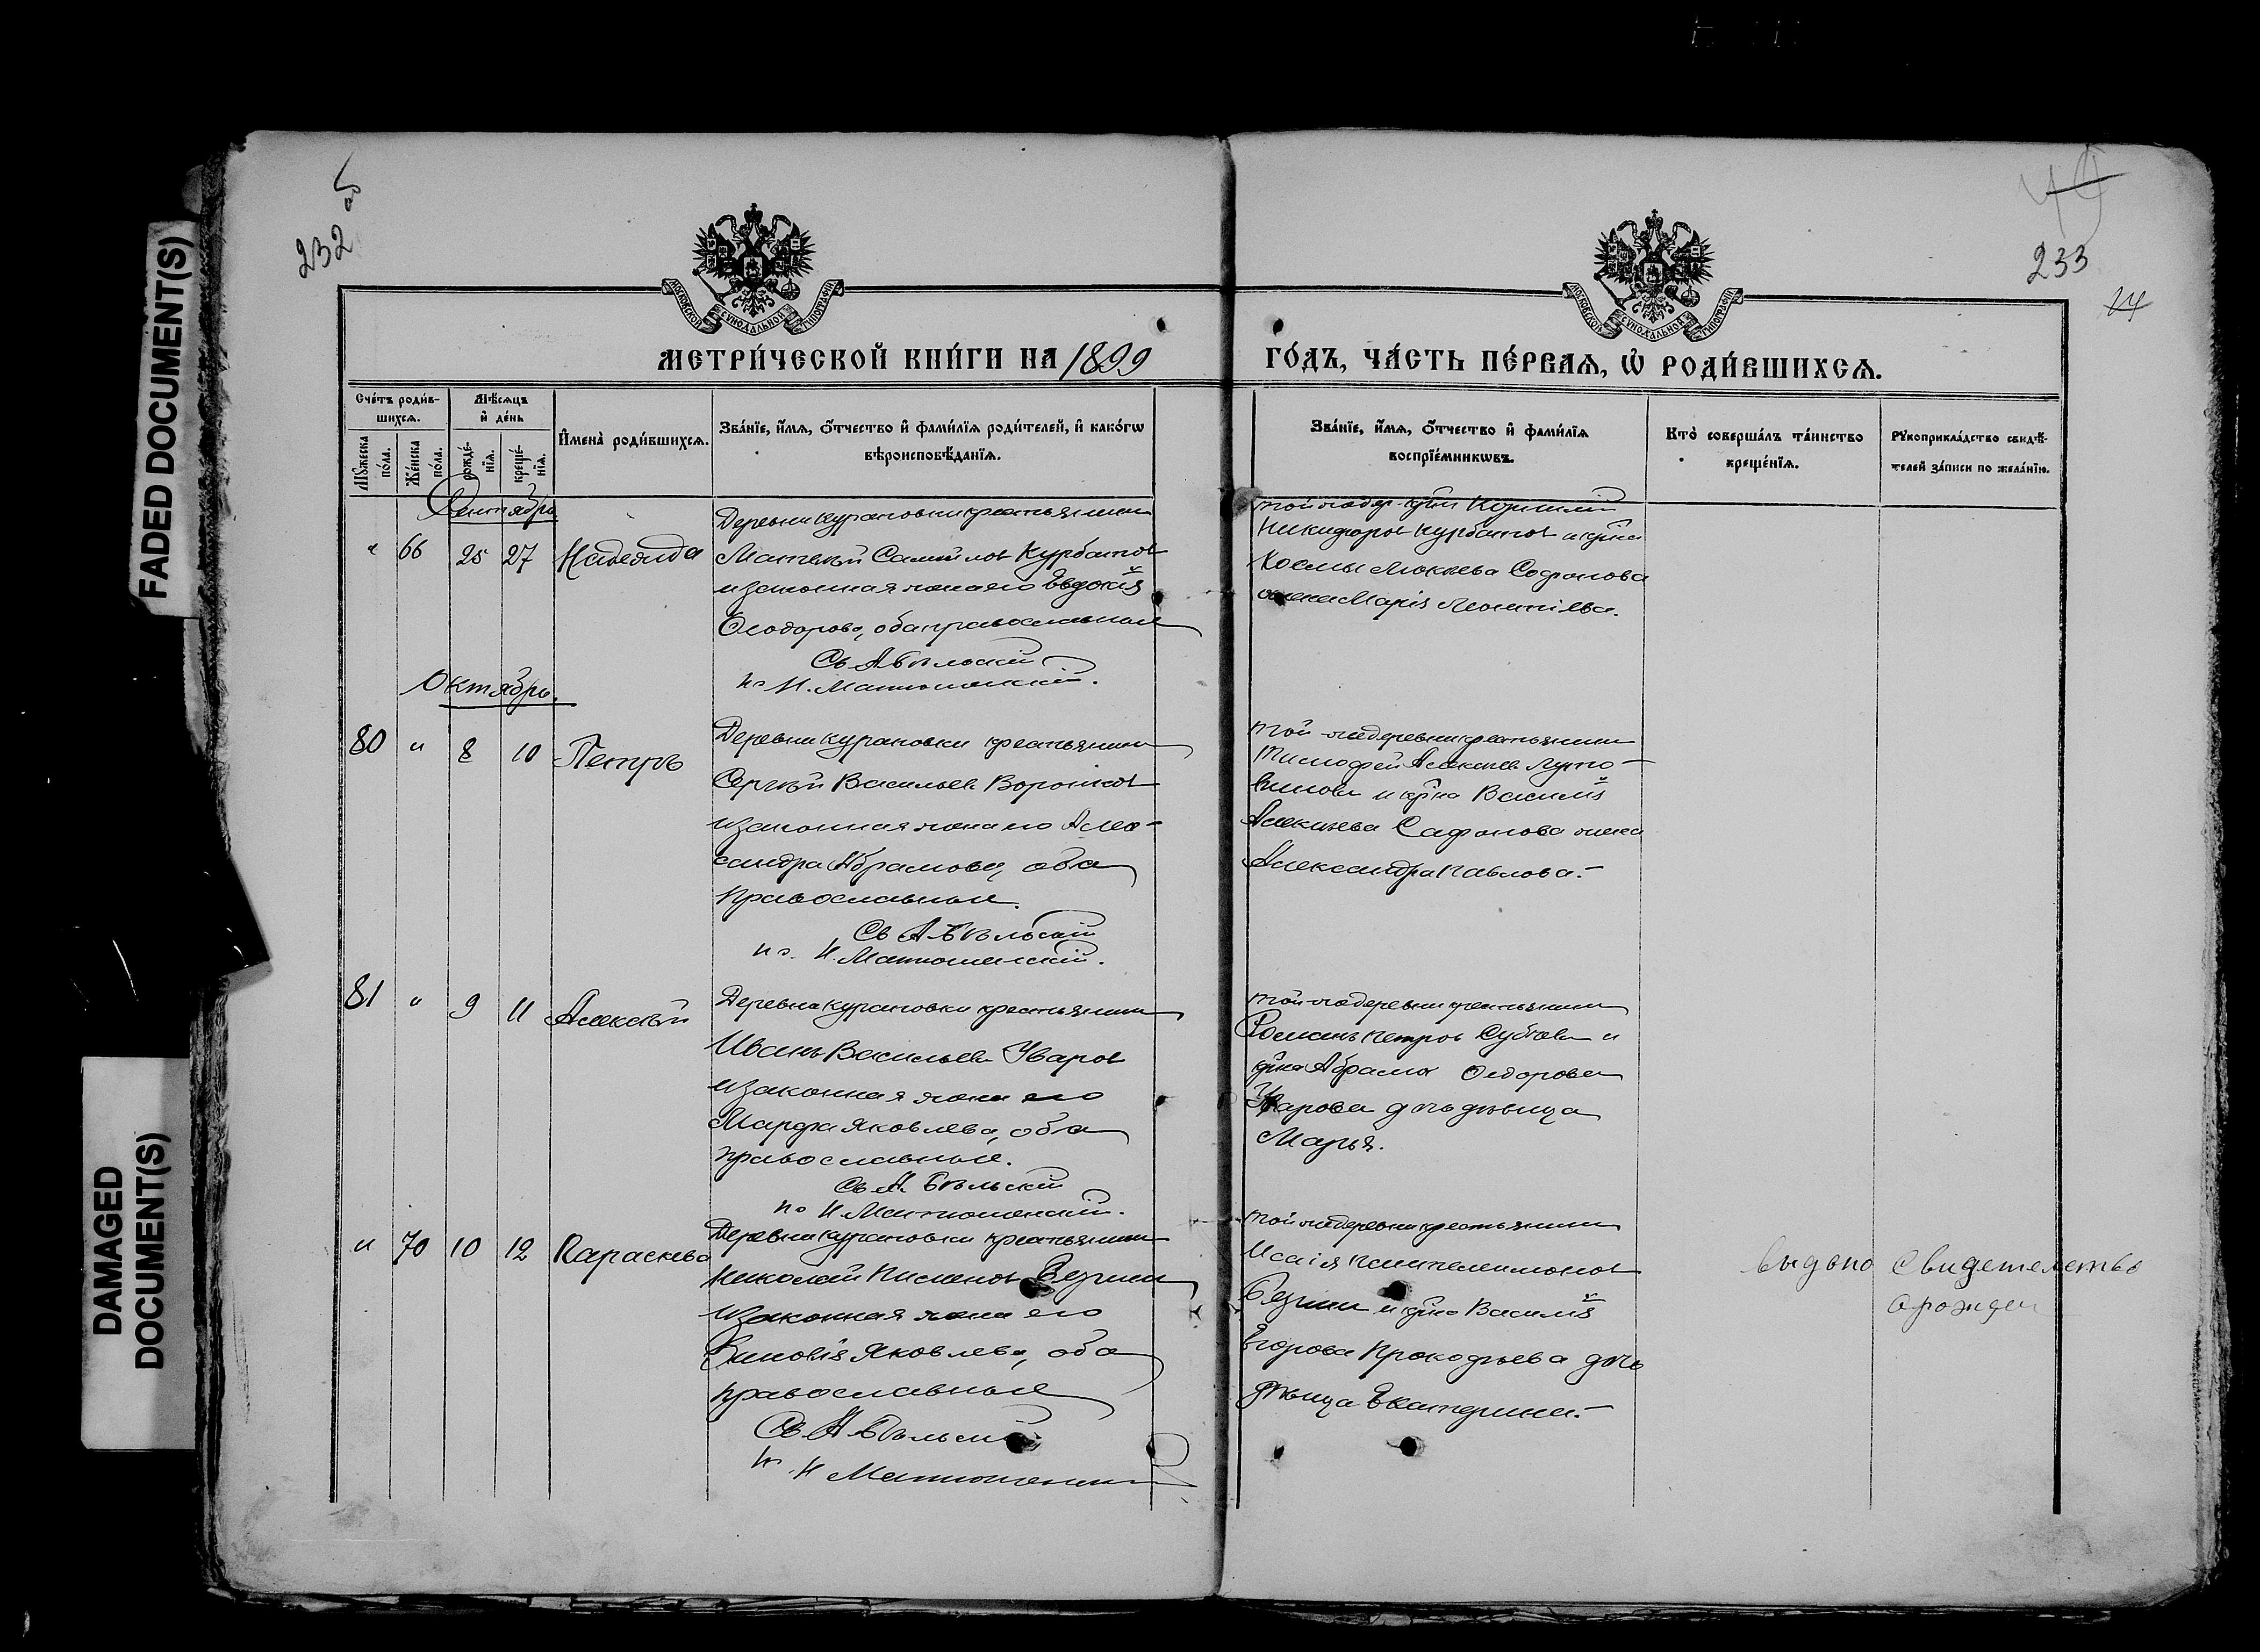 FADED DOCUMENT(S)
DAMAGED
DOCUMENT(S)
232
233
МОСКОВСКОЙ СѴНОДАЛЬНОЙ ТИПОГРАФІИ
МОСКОВСКОЙ СѴНОДАЛЬНОЙ ТИПОГРАФІИ
МЕТРИ́ЧЕСКОЙ КНИ́ГИ НА 1899 ГО́ДЪ, ЧА́СТЬ ПЕ́РВАѦ, Ѡ҆ РОДИ́ВШИХСѦ.
Сче́тъ роди́в-
шихсѧ.
Мꙋ́жеска по́ла.
Же́нска по́ла.
Мѣ́сѧцъ
и҆ де́нь
рожде́-
нїѧ.
креще́-
нїѧ.
И҆мена̀ роди́вшихсѧ.
Зва́нїе, и҆́мѧ, ѻ҆́тчество и҆ фами́лїѧ роди́телей, и҆ како́гѡ
вѣроисповѣ́данїѧ.
Зва́нїе, и҆́мѧ, ѻ҆́тчество и҆ фами́лїѧ
воспрїе́мникѡвъ.
Кто̀ соверша́лъ та́инство
креще́нїѧ.
Рꙋкоприкла́дство свидѣ́-
телей за́писи по жела́нїю.
Сентябрь
" 66 25 27 Надежда
Деревни Курановки крестьянинъ
Матвѣй Самойловъ Курбатовъ
и законная жена его Евдокія
Ѳеодорова, оба православные
Св А. Бѣльскій
пс И. Матюшенскій.
Никифоровъ Курбатовъ и кр-на
Космы Софонова
жена Марія Леонтіева.
Октябрь.
80 " 8 10 Петръ
Деревни Курановки крестьянинъ
Сергѣй Васильевъ Воронковъ
и законная жена его Алек-
сандра Абрамова, оба
православные.
Св А. Бѣльскій
пс. И. Матюшенскій.
той-же деревни крестьянинъ
Тимофей Алексѣевъ Луто-
виновъ и кр-на Василія
Алексѣева Сафонова жена
Александра Павлова.-
81 " 9 11 Алексѣй
Деревни Курановки крестьянинъ
Иванъ Васильевъ Уваровъ
и законная жена его
Марфа Яковлева, оба
православные.
Св А. Бѣльскій
пс И. Матюшенскій.
той-же деревни крестьянинъ
Романъ Петровъ и
кр-на Абрама Ѳедорова
Уварова дочь дѣвица
Марья.
" 70 10 12 Параскева
Деревни Курановки крестьянинъ
Николай
и законная жена его
Зиновія Яковлева, оба
православные
Св А. Бѣльскій
пс. И Матюшенскій
той-же деревни крестьянинъ
Исаія Пантелеимоновъ
и кр-на Василія
Егорова Прокофьева дочь
дѣвица Екатерина.-
выдано свидетелство
о рожден